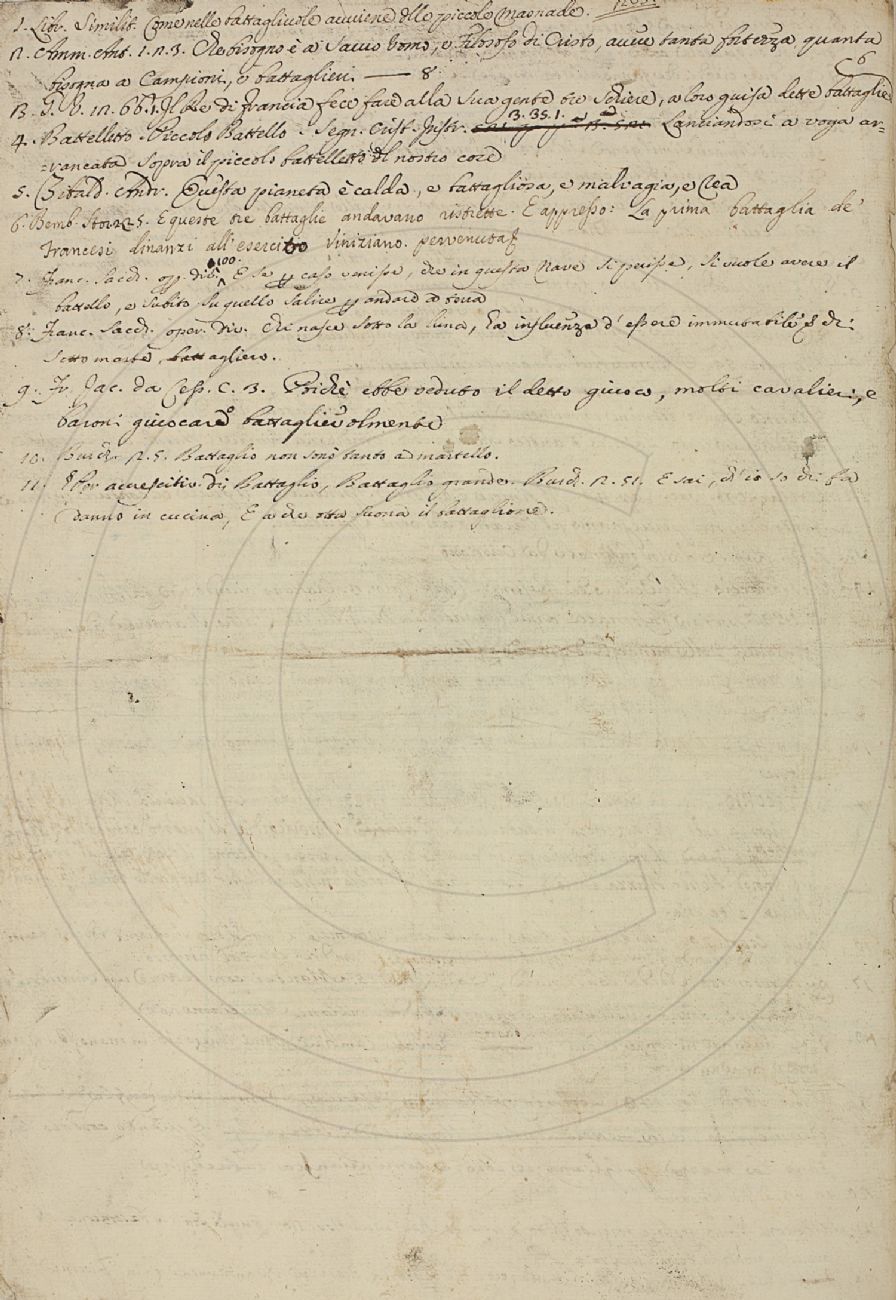 1. Libr. Similit. Come nelle battagliuole avviene delle piccole Masnade.
2. Amm. Ant. 1. 2. 3. Che bisogno è a Savio Uomo, e Filosofo di Cristo, avere tanta fortezza, quanta
bisogna a Campioni, e battaglieri. — 8
6
3. G. V. 12. 66. 1. Il Re di Francia fece fare alla sua gente tre schiere, a loro guisa dette battaglie
4. Battelletto. Piccolo Battello. Segn. Crist. Instr. 3. 35. 1. Lanciandosi a voga ar=
=rancata sopra il piccolo battelletto del nostro core
5. Zibald. Andr. Questa pianeta è calda, e battagliosa, e malvagia, e rea
6. Bemb. Stor. 2. 5. E queste tre battaglie andavano ristrette. E appresso: La prima battaglia de'
Francesi dinanzi all'esercito Viniziano pervenuta
7. Franc. Sacch. op. div. 100. E se per caso venisse, che in questa Nave si perisse, si vuole avere il
battello, e subito su quello salire per andare a terra
8. Franc. Sacch. oper. div. Chi nasce sotto la luna, ha influenza d'essere immutabile chi
sotto marte, battagliero.
9. Fr. Jac. da Cess. C. 3. Poichè ebbe veduto il detto giuoco, molti cavalieri, e
baroni giuocare battaglievolmente
10. Burch. 2. 5. Battaglio non sonò tanto a martello.
11. Per accrescitiv. di Battaglio, Battaglio grande. Burch. 2. 51. E sai, ch'io so chi fa
danno in cucina, E a che otta suona il battaglione.